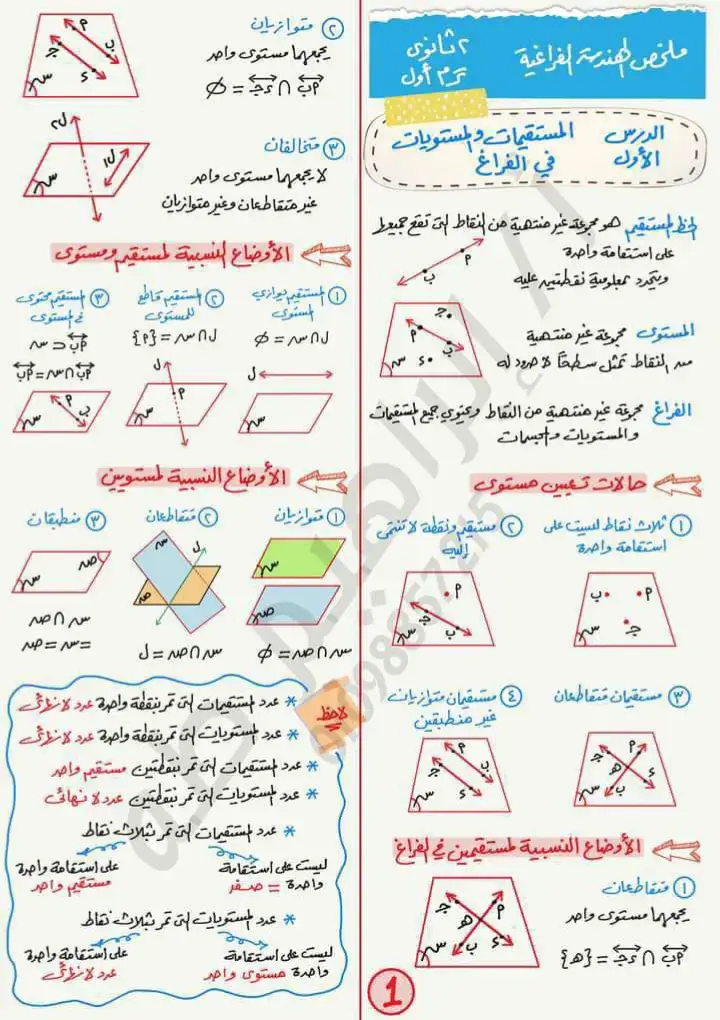 ملخص الهندسة الفراغية
٢ ثانوى
ترم أول
الدرس الأول
المستقيمات والمستويات
فى الفراغ
الخط المستقيم هو مجموعة غير منتهية من النقاط التى تقع جميعها
على استقامة واحدة
ويتحدد بمعلومية نقطتين عليه
P
ب
المستوى مجموعة غير منتهية
من النقاط تمثل سطحًا لا حدود له
جـ
P
ب
ء
س
الفراغ مجموعة غير منتهية من النقاط ويحتوى جميع المستقيمات
والمستويات والمجسمات
حالات تعيين مستوى
① ثلاث نقاط ليست على
استقامة واحدة
P
ب
جـ
س
② مستقيم ونقطة لا تنتمى
إليه
P
جـ
ب
س
③ مستقيمان متقاطعان
P
جـ
هـ
ب
ء
س
④ مستقيمان متوازيان
غير منطبقين
P
جـ
ب
ء
س
الأوضاع النسبية لمستقيمين فى الفراغ
① متقاطعان
يجمعهما مستوى واحد
P↔ب ∩ جـ↔ء = {هـ}
جـ
P
هـ
ب
ء
س
1
② متوازيان
يجمعهما مستوى واحد
P↔ب ∩ جـ↔ء = ∅
P
جـ
ب
ء
س
③ متخالفان
لا يجمعهما مستوى واحد
غير متقاطعان وغير متوازيان
ل٢
ل١
س
الأوضاع النسبية لمستقيم ومستوى
① المستقيم يوازى
المستوى
ل ∩ س = ∅
ل
س
② المستقيم قاطع
للمستوى
ل ∩ س = {P}
ل
P
س
③ المستقيم محتوى
فى المستوى
P↔ب ⊂ س
P↔ب ∩ س = P↔ب
P
ب
س
الأوضاع النسبية لمستويين
① متوازيان
س
ص
س ∩ ص = ∅
② متقاطعان
س
ل
ص
س ∩ ص = ل
③ منطبقان
ص
س
س ∩ ص
= س = ص
لاحظ
* عدد المستقيمات التى تمر بنقطة واحدة عدد لا نهائى
* عدد المستويات التى تمر بنقطة واحدة عدد لا نهائى
* عدد المستقيمات التى تمر بنقطتين مستقيم واحد
* عدد المستويات التى تمر بنقطتين عدد لا نهائى
* عدد المستقيمات التى تمر بثلاث نقاط
ليست على استقامة
واحدة = صفر
على استقامة واحدة
مستقيم واحد
* عدد المستويات التى تمر بثلاث نقاط
ليست على استقامة
واحدة مستوى واحد
على استقامة واحدة
عدد لا نهائى